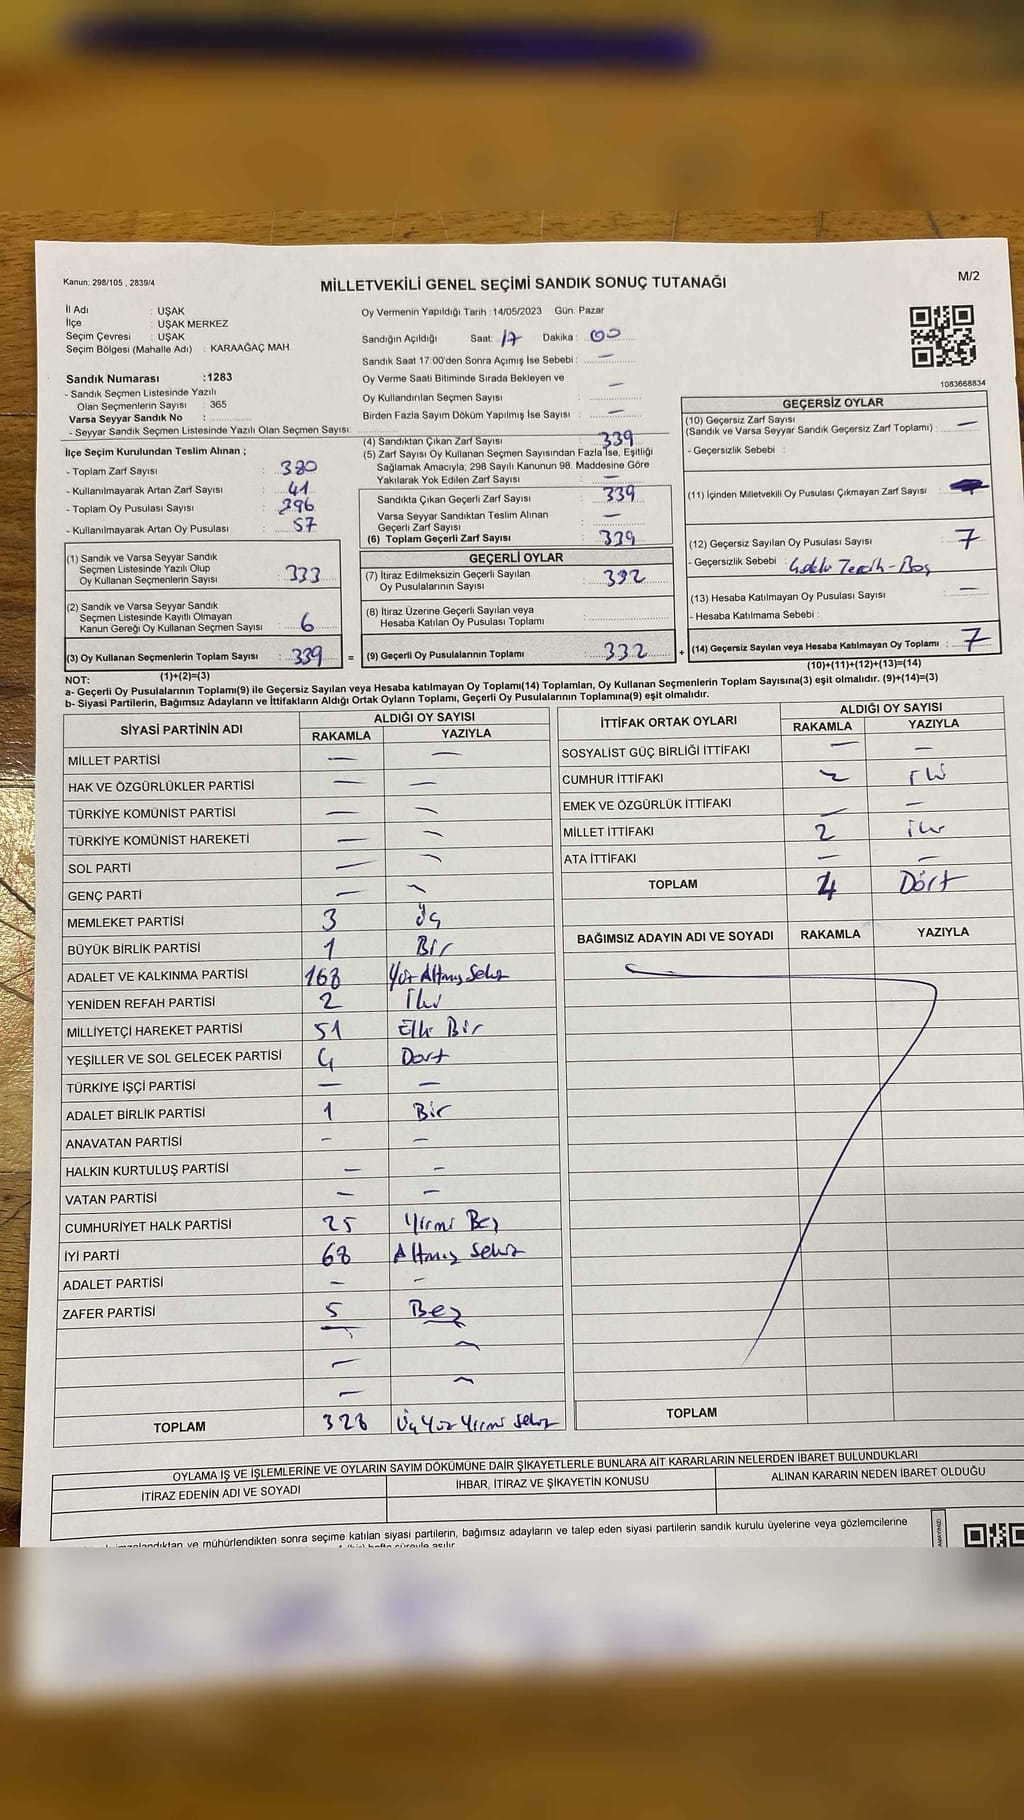 Kanun; 298/105 , 2839/4
MİLLETVEKİLİ GENEL SEÇİMİ SANDIK SONUÇ TUTANAĞI
M/2
İl Adı : UŞAK
İlçe : UŞAK MERKEZ
Seçim Çevresi : UŞAK
Seçim Bölgesi (Mahalle Adı) : KARAAĞAÇ MAH.
Sandık Numarası :1283
- Sandık Seçmen Listesinde Yazılı
Olan Seçmenlerin Sayısı : 365
Varsa Seyyar Sandık No :
- Seyyar Sandık Seçmen Listesinde Yazılı Olan Seçmen Sayısı:
Oy Vermenin Yapıldığı Tarih :14/05/2023 Gün: Pazar
Sandığın Açıldığı Saat: 17 Dakika : 00
Sandık Saat 17:00'den Sonra Açımış İse Sebebi : —
Oy Verme Saati Bitiminde Sırada Bekleyen ve
Oy Kullandırılan Seçmen Sayısı —
Birden Fazla Sayım Döküm Yapılmış İse Sayısı : —
1083668834
İlçe Seçim Kurulundan Teslim Alınan ;
- Toplam Zarf Sayısı : 380
- Kullanılmayarak Artan Zarf Sayısı : 41
- Toplam Oy Pusulası Sayısı : 396
- Kullanılmayarak Artan Oy Pusulası : 57
(1) Sandık ve Varsa Seyyar Sandık
Seçmen Listesinde Yazılı Olup
Oy Kullanan Seçmenlerin Sayısı : 333
(2) Sandık ve Varsa Seyyar Sandık
Seçmen Listesinde Kayıtlı Olmayan
Kanun Gereği Oy Kullanan Seçmen Sayısı : 6
(3) Oy Kullanan Seçmenlerin Toplam Sayısı : 339 =
(1)+(2)=(3)
(4) Sandıktan Çıkan Zarf Sayısı : 339
(5) Zarf Sayısı Oy Kullanan Seçmen Sayısından Fazla İse, Eşitliği
Sağlamak Amacıyla; 298 Sayılı Kanunun 98. Maddesine Göre
Yakılarak Yok Edilen Zarf Sayısı : —
Sandıkta Çıkan Geçerli Zarf Sayısı : 339
Varsa Seyyar Sandıktan Teslim Alınan
Geçerli Zarf Sayısı : —
(6) Toplam Geçerli Zarf Sayısı : 339
GEÇERLİ OYLAR
(7) İtiraz Edilmeksizin Geçerli Sayılan
Oy Pusulalarının Sayısı : 332
(8) İtiraz Üzerine Geçerli Sayılan veya
Hesaba Katılan Oy Pusulası Toplamı :
(9) Geçerli Oy Pusulalarının Toplamı : 332 +
GEÇERSİZ OYLAR
(10) Geçersiz Zarf Sayısı
(Sandık ve Varsa Seyyar Sandık Geçersiz Zarf Toplamı) : —
- Geçersizlik Sebebi :
(11) İçinden Milletvekili Oy Pusulası Çıkmayan Zarf Sayısı :
(12) Geçersiz Sayılan Oy Pusulası Sayısı : 7
- Geçersizlik Sebebi : Boş
(13) Hesaba Katılmayan Oy Pusulası Sayısı : —
- Hesaba Katılmama Sebebi :
(14) Geçersiz Sayılan veya Hesaba Katılmayan Oy Toplamı : 7
(10)+(11)+(12)+(13)=(14)
NOT:
a- Geçerli Oy Pusulalarının Toplamı(9) ile Geçersiz Sayılan veya Hesaba katılmayan Oy Toplamı(14) Toplamları, Oy Kullanan Seçmenlerin Toplam Sayısına(3) eşit olmalıdır. (9)+(14)=(3)
b- Siyasi Partilerin, Bağımsız Adayların ve İttifakların Aldığı Ortak Oyların Toplamı, Geçerli Oy Pusulalarının Toplamına(9) eşit olmalıdır.
SİYASİ PARTİNİN ADI ALDIĞI OY SAYISI
RAKAMLA YAZIYLA
MİLLET PARTİSİ — —
HAK VE ÖZGÜRLÜKLER PARTİSİ — —
TÜRKİYE KOMÜNİST PARTİSİ — —
TÜRKİYE KOMÜNİST HAREKETİ — —
SOL PARTİ — —
GENÇ PARTİ — —
MEMLEKET PARTİSİ 3 Üç
BÜYÜK BİRLİK PARTİSİ 1 Bir
ADALET VE KALKINMA PARTİSİ 168 Yüz Altmış Sekiz
YENİDEN REFAH PARTİSİ 2 İki
MİLLİYETÇİ HAREKET PARTİSİ 51 Elli Bir
YEŞİLLER VE SOL GELECEK PARTİSİ 4 Dört
TÜRKİYE İŞÇİ PARTİSİ — —
ADALET BİRLİK PARTİSİ 1 Bir
ANAVATAN PARTİSİ — —
HALKIN KURTULUŞ PARTİSİ — —
VATAN PARTİSİ — —
CUMHURİYET HALK PARTİSİ 25 Yirmi Beş
İYİ PARTİ 68 Altmış Sekiz
ADALET PARTİSİ — —
ZAFER PARTİSİ 5 Beş
TOPLAM 328 Üç Yüz Yirmi Sekiz
İTTİFAK ORTAK OYLARI ALDIĞI OY SAYISI
RAKAMLA YAZIYLA
SOSYALİST GÜÇ BİRLİĞİ İTTİFAKI — —
CUMHUR İTTİFAKI 2 İki
EMEK VE ÖZGÜRLÜK İTTİFAKI — —
MİLLET İTTİFAKI 2 iki
ATA İTTİFAKI — —
TOPLAM 4 Dört
BAĞIMSIZ ADAYIN ADI VE SOYADI RAKAMLA YAZIYLA
TOPLAM
OYLAMA İŞ VE İŞLEMLERİNE VE OYLARIN SAYIM DÖKÜMÜNE DAİR ŞİKAYETLERLE BUNLARA AİT KARARLARIN NELERDEN İBARET BULUNDUKLARI
İTİRAZ EDENİN ADI VE SOYADI İHBAR, İTİRAZ VE ŞİKAYETİN KONUSU ALINAN KARARIN NEDEN İBARET OLDUĞU
ve mühürlendikten sonra seçime katılan siyasi partilerin, bağımsız adayların ve talep eden siyasi partilerin sandık kurulu üyelerine veya gözlemcilerine